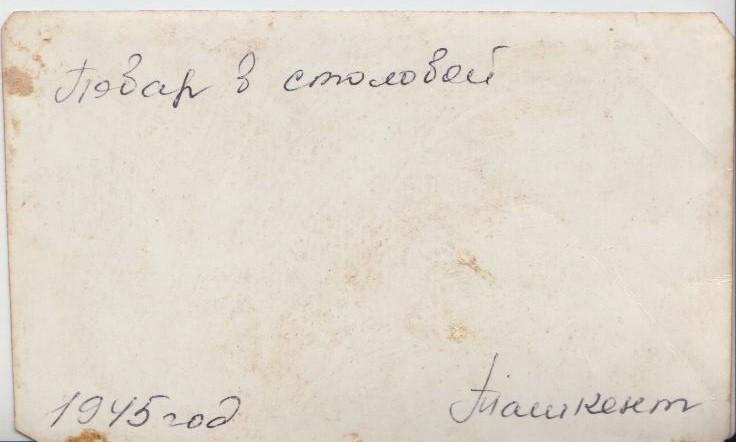 Повар в столовой
1945 год
Ташкент